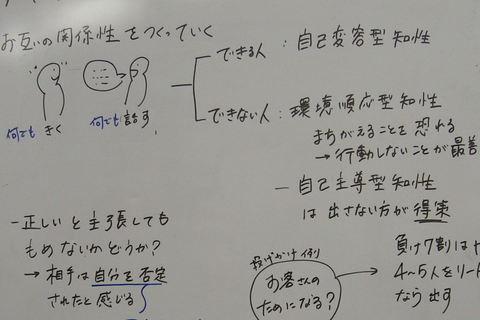 お互いの関係性をつくっていく
できる人：自己変容型知性
何でも きく
何でも 話す
できない人：環境順応型知性
まちがえることを恐れる
→行動しないことが最善
― 自己主導型知性
は 出さない方が得策
―正しいと主張しても
もめないかどうか？
→ 相手は自分を否定
されたと感じる
投げかけ例
お客さんの
ためになる？
負け7割は
4〜5人をリート
なら出す